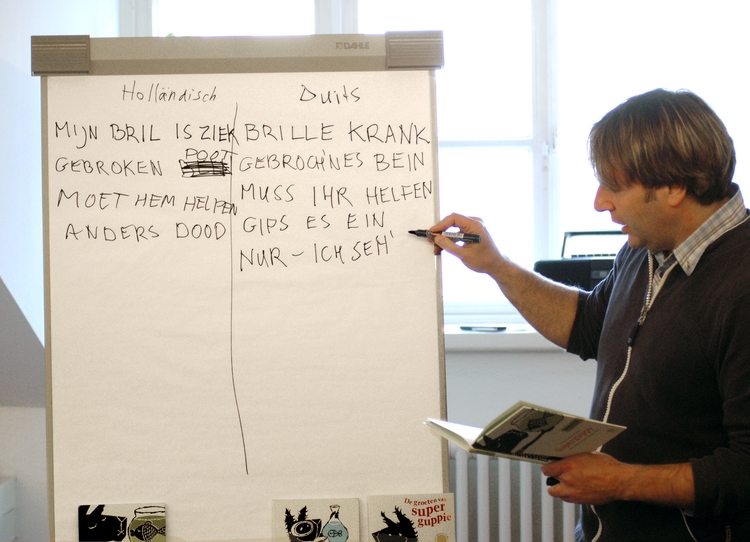 DAHLE
Holländisch
Duits
MIJN BRIL IS ZIEK
GEBROKEN POOT
MOET HEM HELPEN
ANDERS DOOD
BRILLE KRANK
GEBROCH'NES BEIN
MUSS IHR HELFEN
GIPS ES EIN
NUR – ICH SEH'
De groeten van
super
guppie